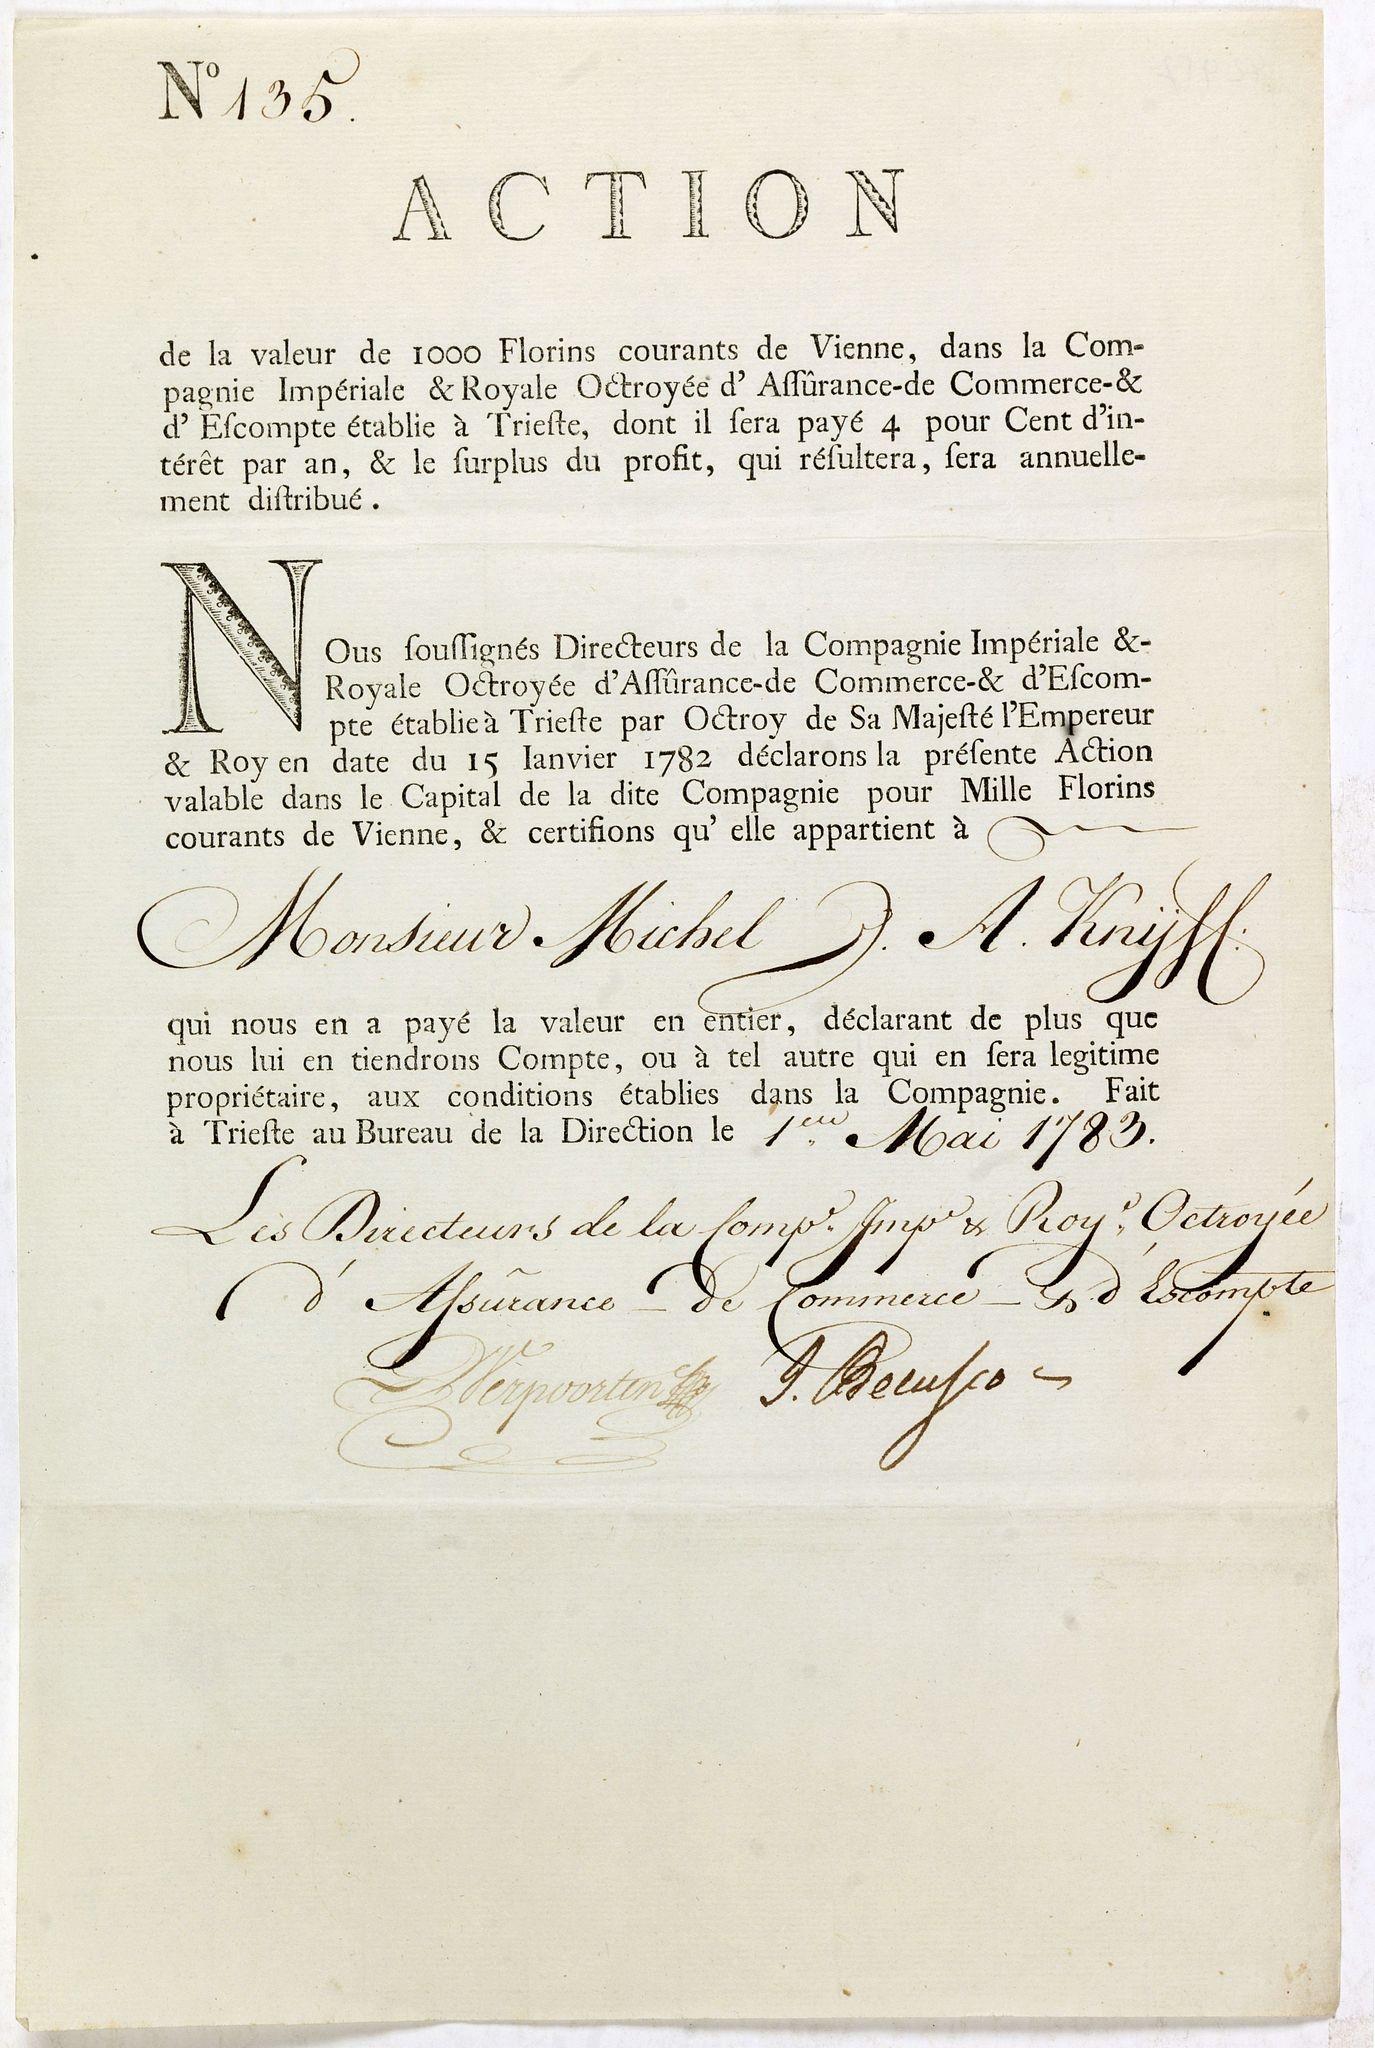 Nº 135.
ACTION
de la valeur de 1000 Florins courants de Vienne, dans la Com-
pagnie Impériale & Royale Octroyée d' Aſſûrance-de Commerce-&
d' Eſcompte établie à Trieſte, dont il ſera payé 4 pour Cent d'in-
térêt par an, & le ſurplus du profit, qui réſultera, ſera annuelle-
ment diſtribué.
NOus ſouſſignés Directeurs de la Compagnie Impériale &-
Royale Octroyée d'Aſſûrance-de Commerce-& d'Eſcom-
pte établie à Trieſte par Octroy de Sa Majeſté l'Empereur
& Roy en date du 15 Ianvier 1782 déclarons la préſente Action
valable dans le Capital de la dite Compagnie pour Mille Florins
courants de Vienne, & certifions qu' elle appartient à
Monsieur Michel J. A. Knÿff.
qui nous en a payé la valeur en entier, déclarant de plus que
nous lui en tiendrons Compte, ou à tel autre qui en ſera legitime
propriétaire, aux conditions établies dans la Compagnie. Fait
à Trieſte au Bureau de la Direction le 1er Mai 1783.
Les Directeurs de la Compe. Impe & Roye. Octroyée
d' Aſsûrance - de Commerce - & d' Escompte
Verpoorten